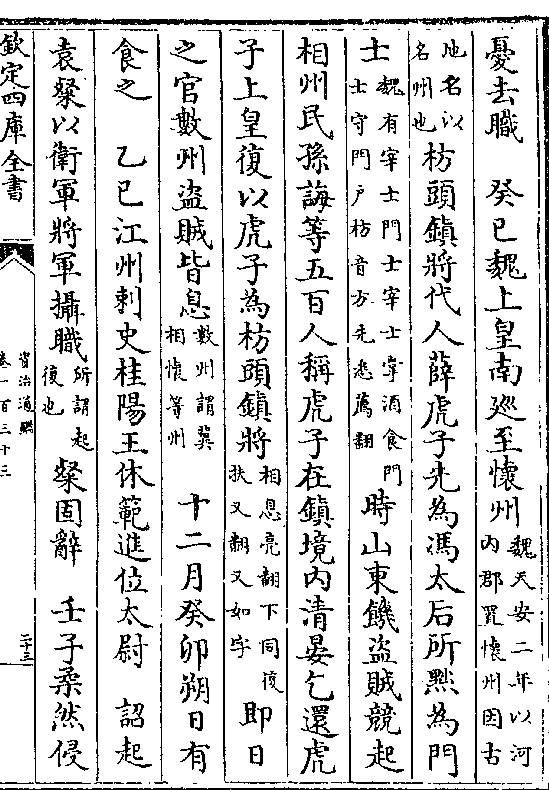 憂去職　癸巳魏上皇南廵至懷州魏天安二年以河内郡置懷州因古
地名以名州也枋頭鎮將代人薛虎子先為馮太后所黜為門
士魏有宰士門士宰士掌酒食門士守門戶枋音方先悉薦翻時山東饑盜賊競起
相州民孫誨等五百人稱虎子在鎮境内清晏乞還虎
子上皇復以虎子為枋頭鎮將相息亮翻下同復扶又翻又如字即日
之官數州盜賊皆息數州謂冀相懷等州　十二月癸卯朔日有
食之　乙巳江州刺史桂陽王休範進位太尉　詔起
袁粲以衛軍將軍攝職所謂起復也粲固辭　壬子柔然侵
欽定四庫全書
資治通鑑
卷一百三十三
二十三